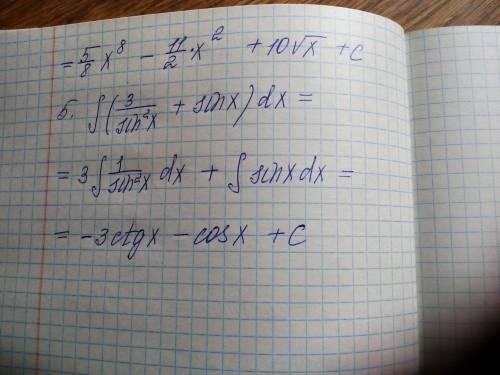 = 5/8 x⁸ - 11/2 · x² + 10√x + C
5. ∫(3/sin²x + sinx)dx =
= 3∫1/sin²x dx + ∫sinx dx =
= -3ctgx - cosx + C